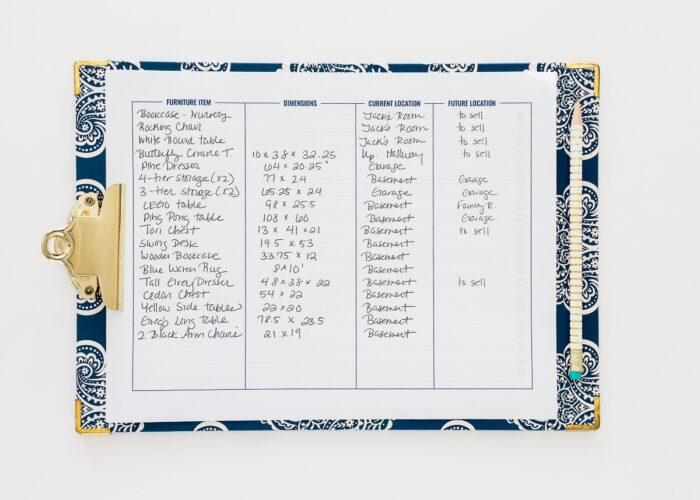 FURNITURE ITEM DIMENSIONS CURRENT LOCATION FUTURE LOCATION
Bookcase - Nursery Jack's Room to sell
Rocking Chair Jack's Room to sell
White Round table Jack's Room to sell
Butterfly Console T 10 x 38 x 32.25 Up. Hallway to sell
Pine Dresser 64 x 20.25" Garage
4-tier storage (x2) 77 x 24 Basement Garage
3-tier storage (x2) 65.25 x 24 Garage Garage
LEGO table 98 x 25.5 Basement Family R.
Ping Pong table 108 x 60 Basement Garage
Tori Chest 13 x 41 x 21 Basement to sell
Swing Desk 19.5 x 53 Basement
Wooden Bookcase 33.75 x 12 Basement
Blue Woven Rug 8 x 10' Basement
Tall Grey Dresser 48 x 38 x 22 Basement to sell
Cedar Chest 54 x 22 Basement
Yellow Side tables 22 x 20 Basement
Greg's Long table 78.5 x 23.5 Basement
2 Black Arm Chairs 21 x 19 Basement